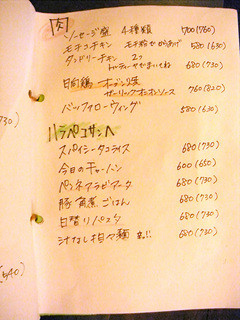 肉
ソーセージ盛 4種類 700(760)
モチコチキン モチ粉でからあげ 580(630)
タンドリーチキン 2ヶ
680(730)
日向鶏 オーブン焼
ガーリックオニオンソース 760(820)
バッファローウィング 580(630)
ハラペコサンへ
スパイシータコライス 680(730)
今日のチャーハン 600(650)
ペンネアラビアータ 680(730)
豚角煮ごはん 680(730)
日替りパスタ 680(730)
汁なし担々麺 680(730)
730)
(540)